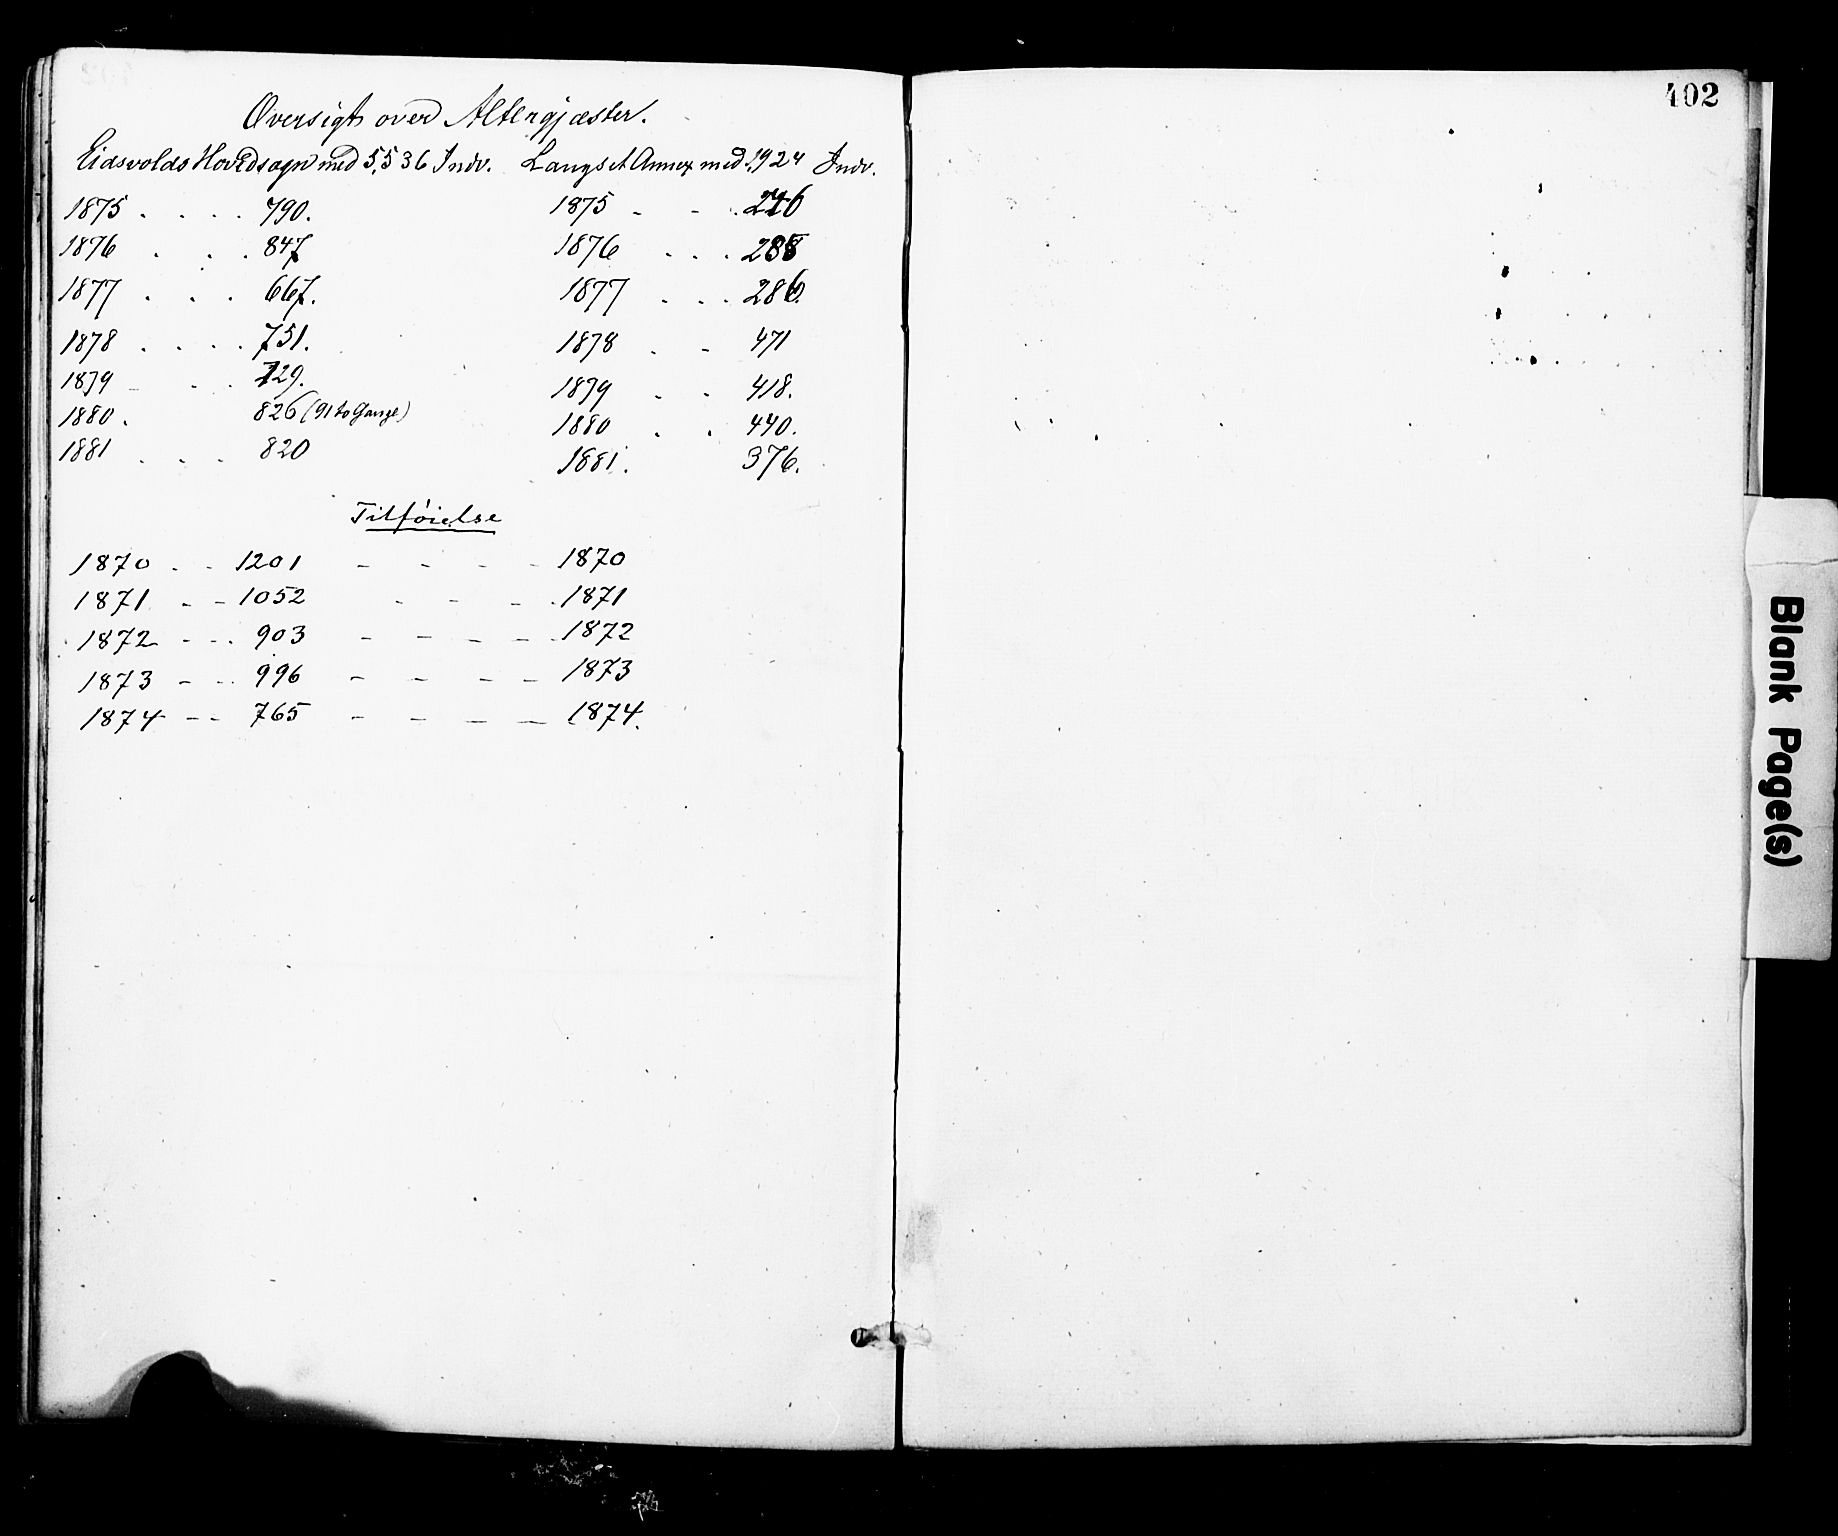 Oversigt over Altergjæster.
Eidsvolds Hovedsogn med 5,536 Indv. Langset Annex med 1,924 Indv.
1875 . . . . 790. 1875 - - .
1876 . . . 847 1876 . . .
1877 . . . 667. 1877 . . . 286.
1878 . . . . 751. 1878 . - 471
1879 - . . 729. 1879 . . 418.
1880 . 826 (91 to Gange) 1880 . . 440.
1881 . . . 820 1881. 376.
Tilføielse
1870 . - 1201 - - - - 1870
1871 - - 1052 . - - . 1871
1872 - - . 903 - - - - . 1872
1873 - - . 996 - - - - 1873
1874 - - 765 - - - - 1874.
402
Blank Page(s)